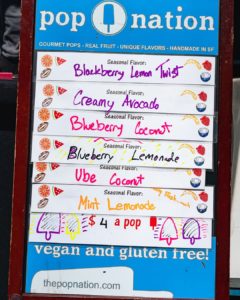 pop nation
GOURMET POPS - REAL FRUIT - UNIQUE FLAVORS - HANDMADE IN SF
Seasonal Flavor:
Blackberry Lemon Twist
Seasonal Flavor:
Creamy Avocado
Seasonal Flavor:
Blueberry Coconut
Seasonal Flavor:
Blueberry Lemonade
Seasonal Flavor:
Ube Coconut
Seasonal Flavor:
Mint Lemonade
$4 a pop
vegan and gluten free!
thepopnation.com